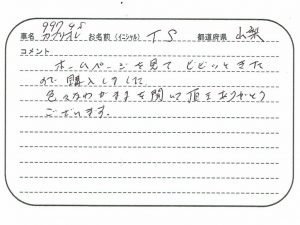 997 4S
車名 カブリオレ お名前(イニシャル) T S 都道府県 山梨
コメント
ホームページを見て ビビッときた
ので購入しました
色々なわがままを聞いて頂きありがとう
ございます.